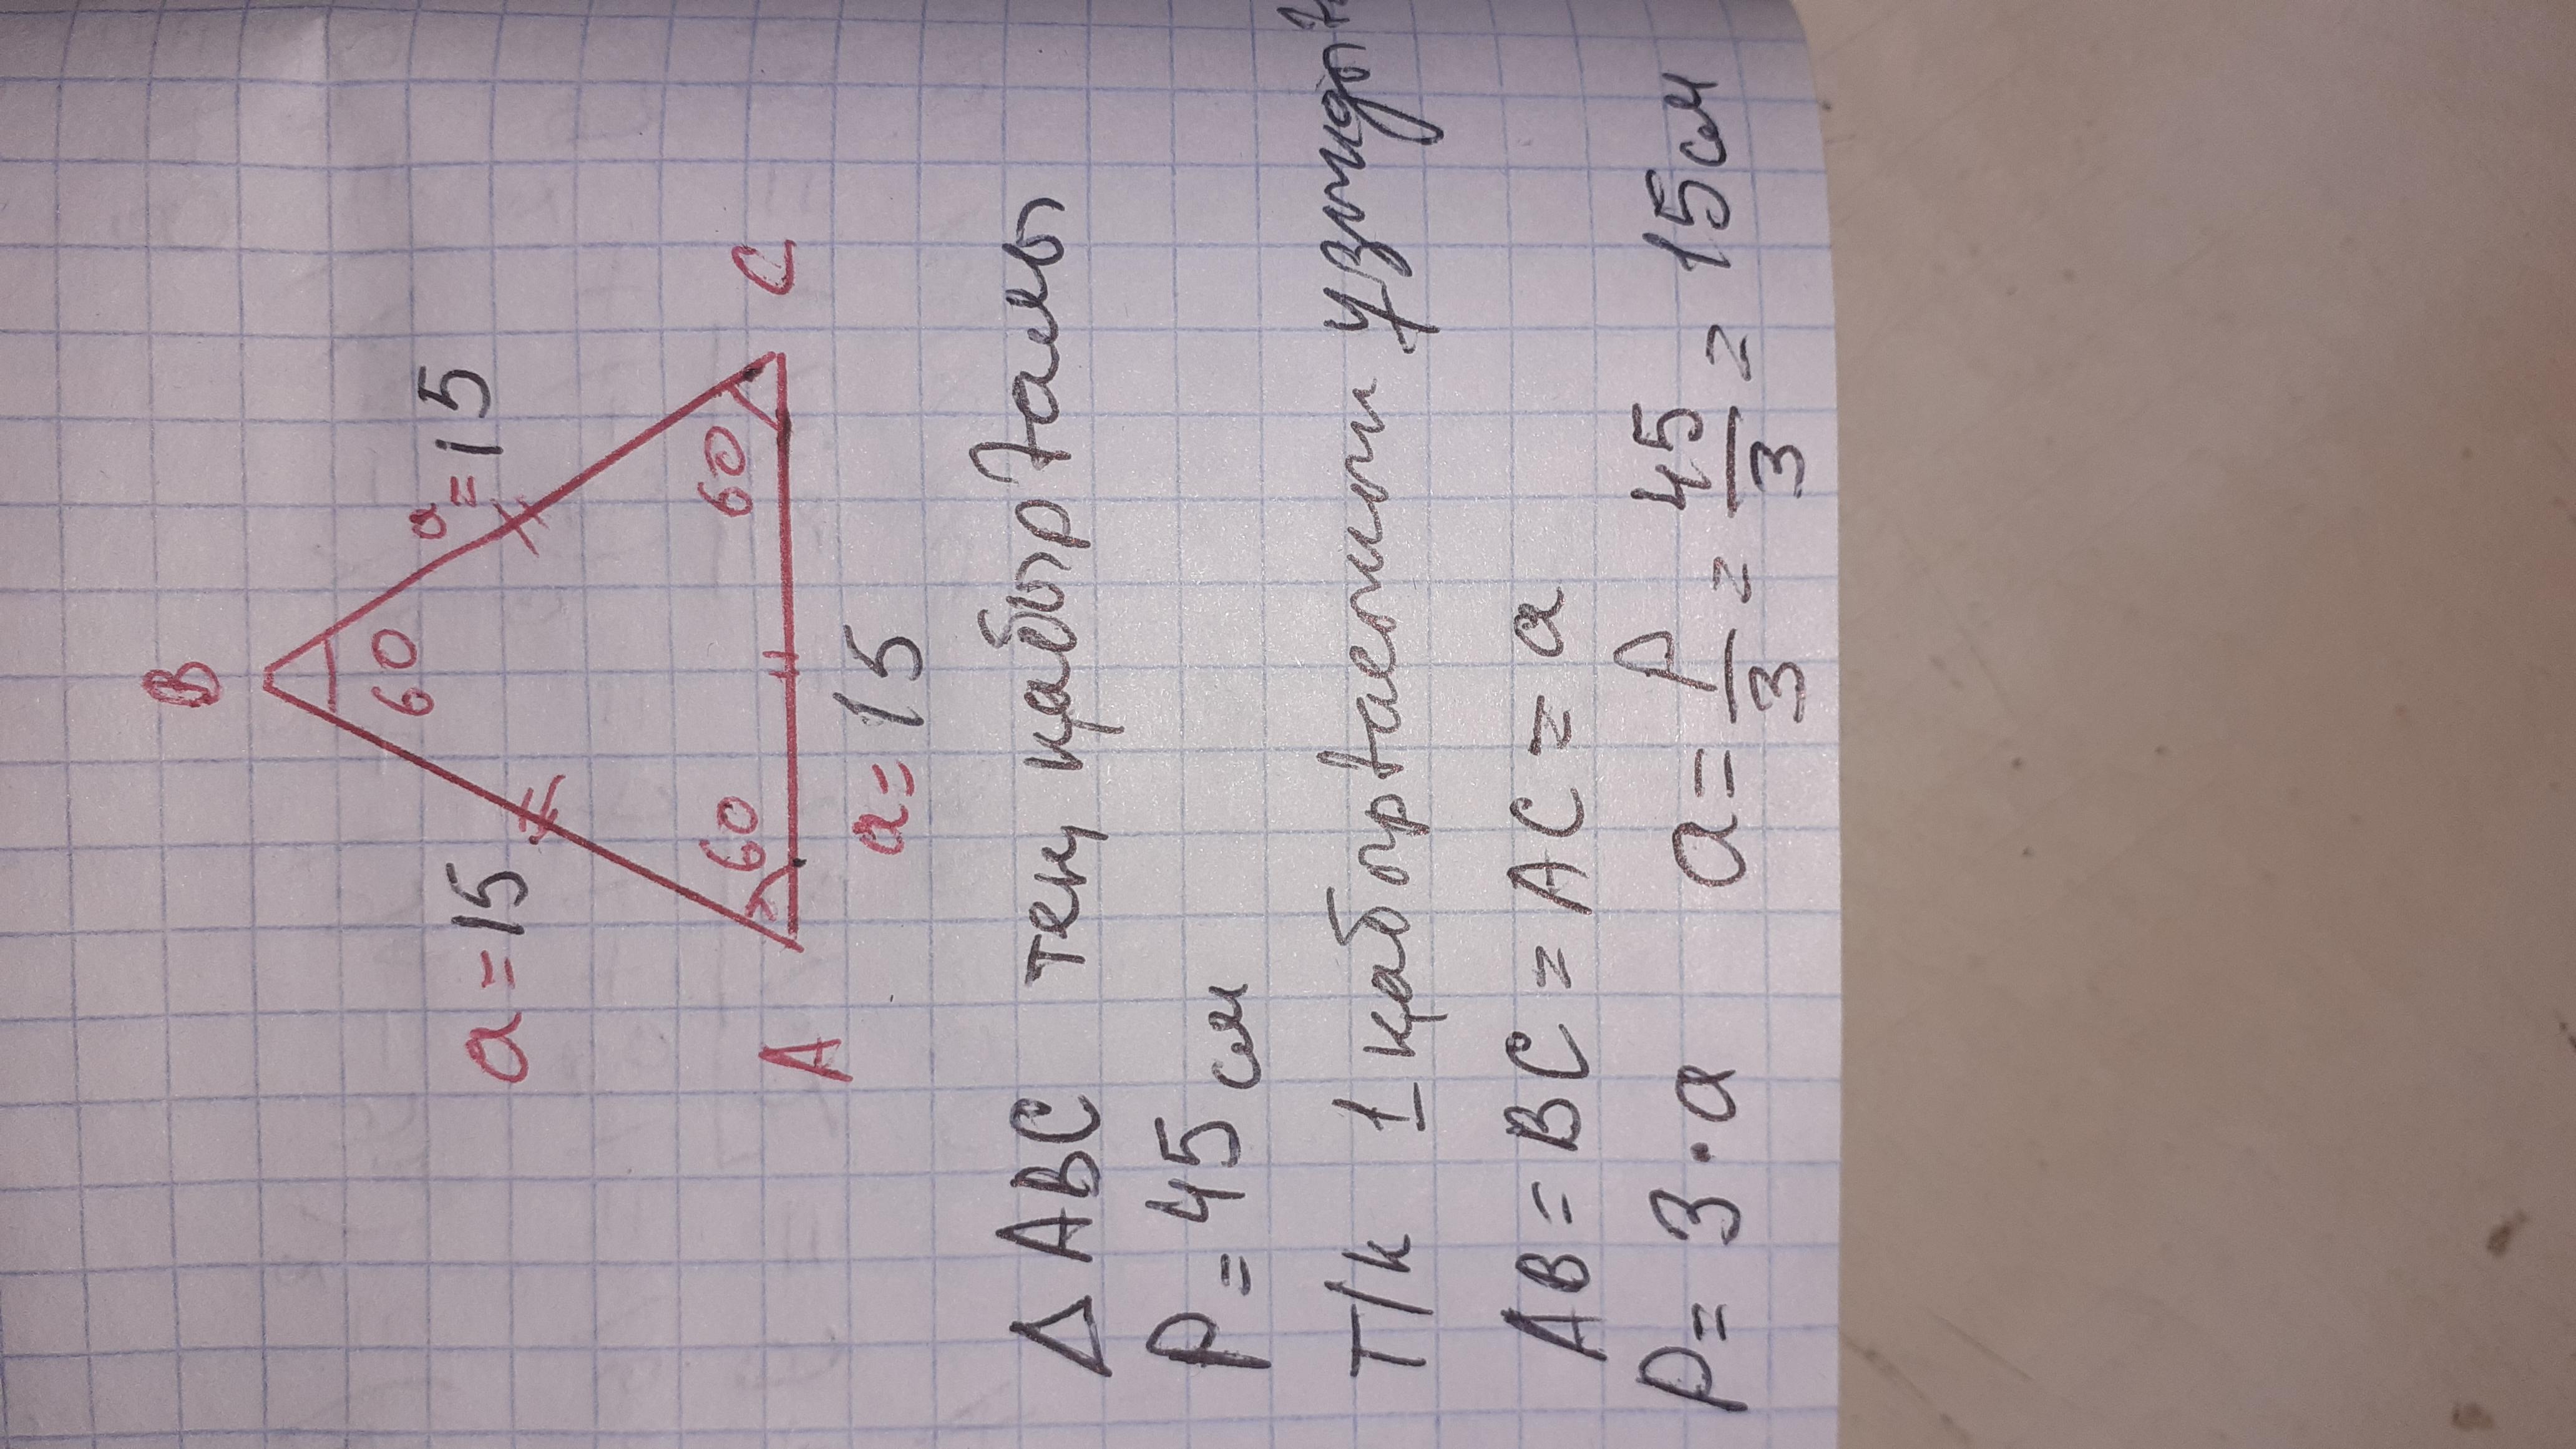 B
a=15
a=15
60
60
60
A
C
a=15
△ ABC тең қабырғалы
P=45 см
Т/к 1 қабырғасының ұзындығ
AB=BC=AC=a
P=3·a a=P/3=45/3=15см